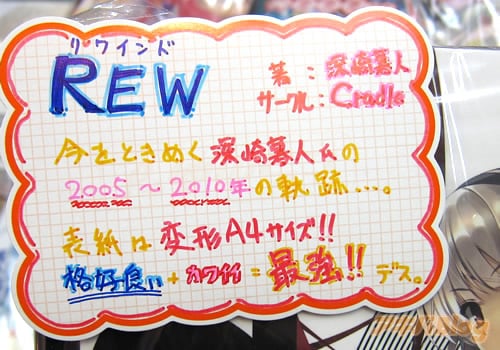 リワインド
REW
著：深崎暮人
サークル：Cradle
今をときめく深崎暮人氏の
2005～2010年の軌跡…。
表紙は変形A4サイズ!!
格好良い+カワイイ=最強!!デス。